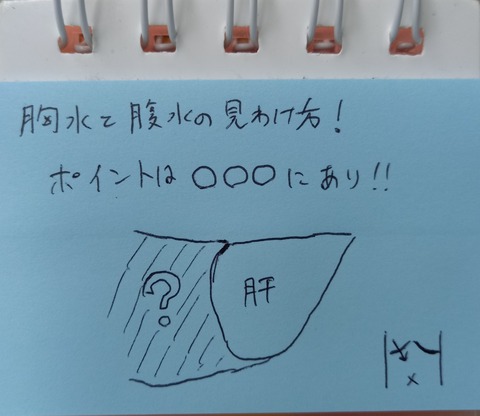 胸水と腹水の見わけ方!
ポイントは○○○にあり!!
?
肝